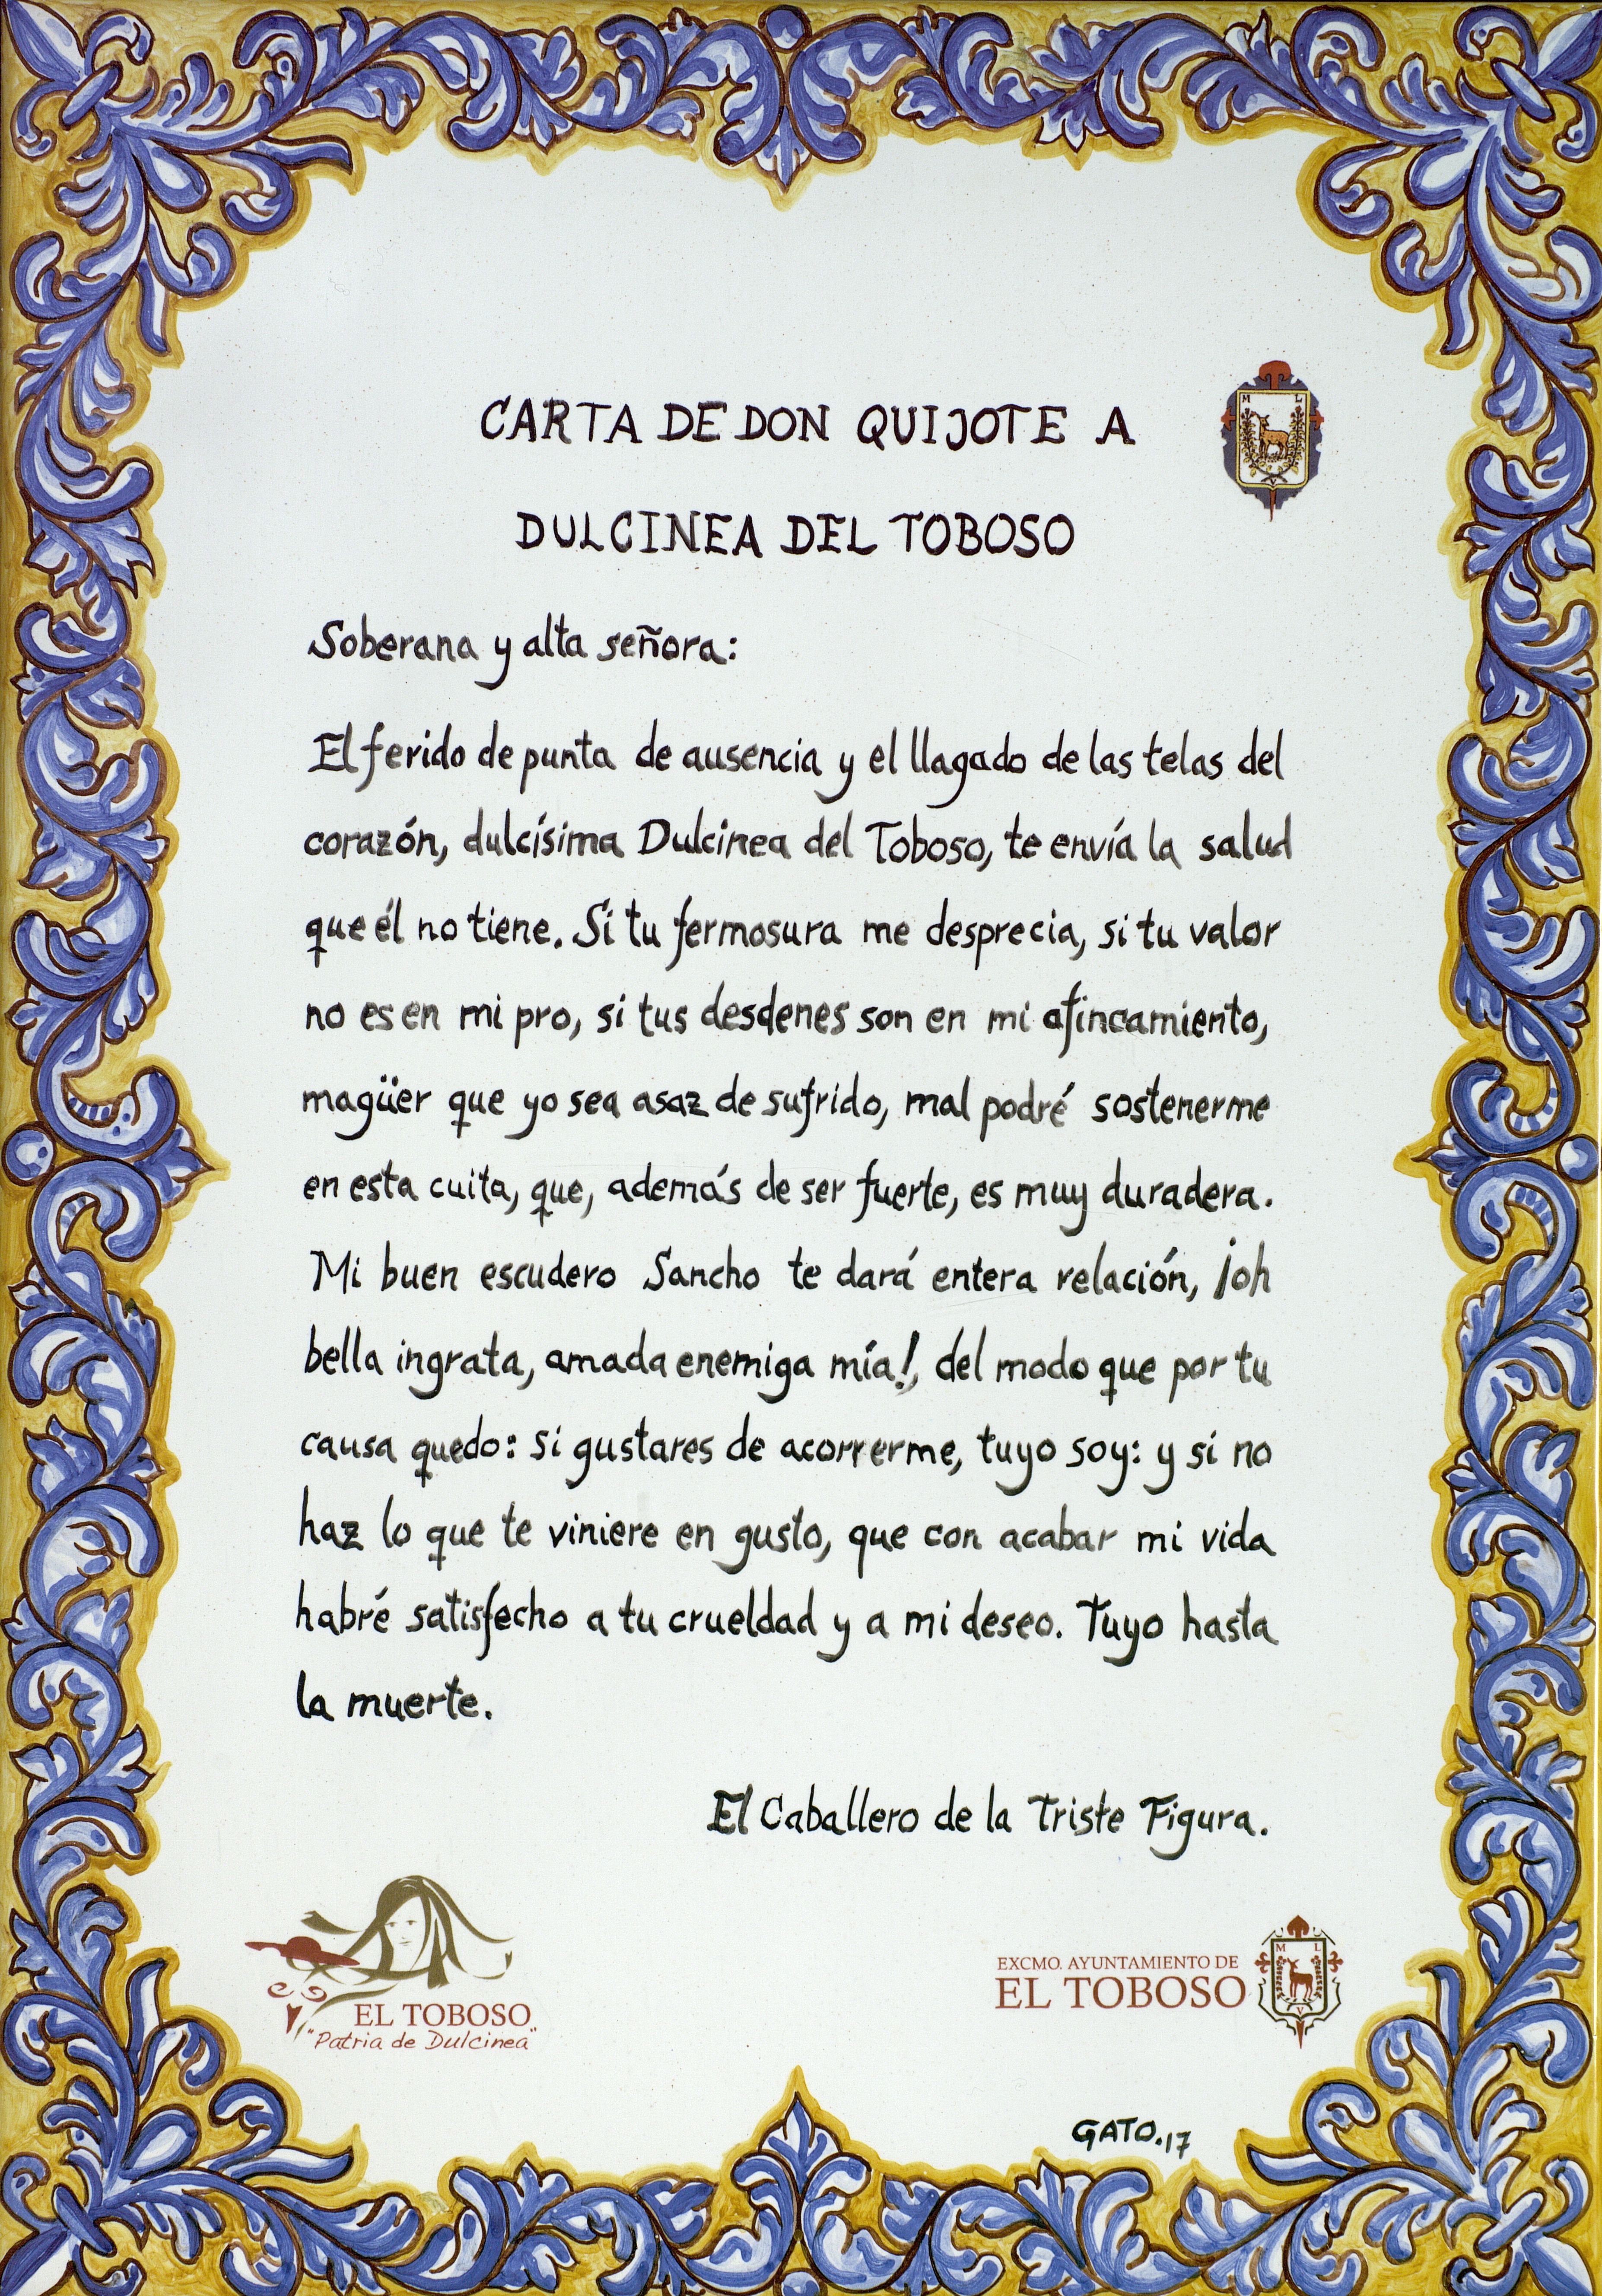 CARTA DE DON QUIJOTE A
M L
V
DULCINEA DEL TOBOSO
Soberana y alta señora:
El ferido de punta de ausencia y el llagado de las telas del
corazón, dulcísima Dulcinea del Toboso, te envía la salud
que él no tiene. Si tu fermosura me desprecia, si tu valor
no es en mi pro, si tus desdenes son en mi afincamiento,
magüer que yo sea asaz de sufrido, mal podré sostenerme
en esta cuita, que, además de ser fuerte, es muy duradera.
Mi buen escudero Sancho te dará entera relación, ¡oh
bella ingrata, amada enemiga mía!, del modo que por tu
causa quedo: si gustares de acorrerme, tuyo soy: y si no
haz lo que te viniere en gusto, que con acabar mi vida
habré satisfecho a tu crueldad y a mi deseo. Tuyo hasta
la muerte.
El Caballero de la Triste Figura.
EL TOBOSO
"Patria de Dulcinea"
EXCMO. AYUNTAMIENTO DE
EL TOBOSO
M L
V
GATO.17